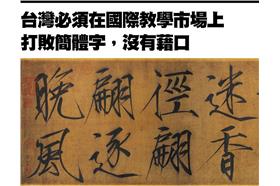 台灣必須在國際教學市場上
打敗簡體字，沒有藉口
迷香
徑翩
翩逐
晚風